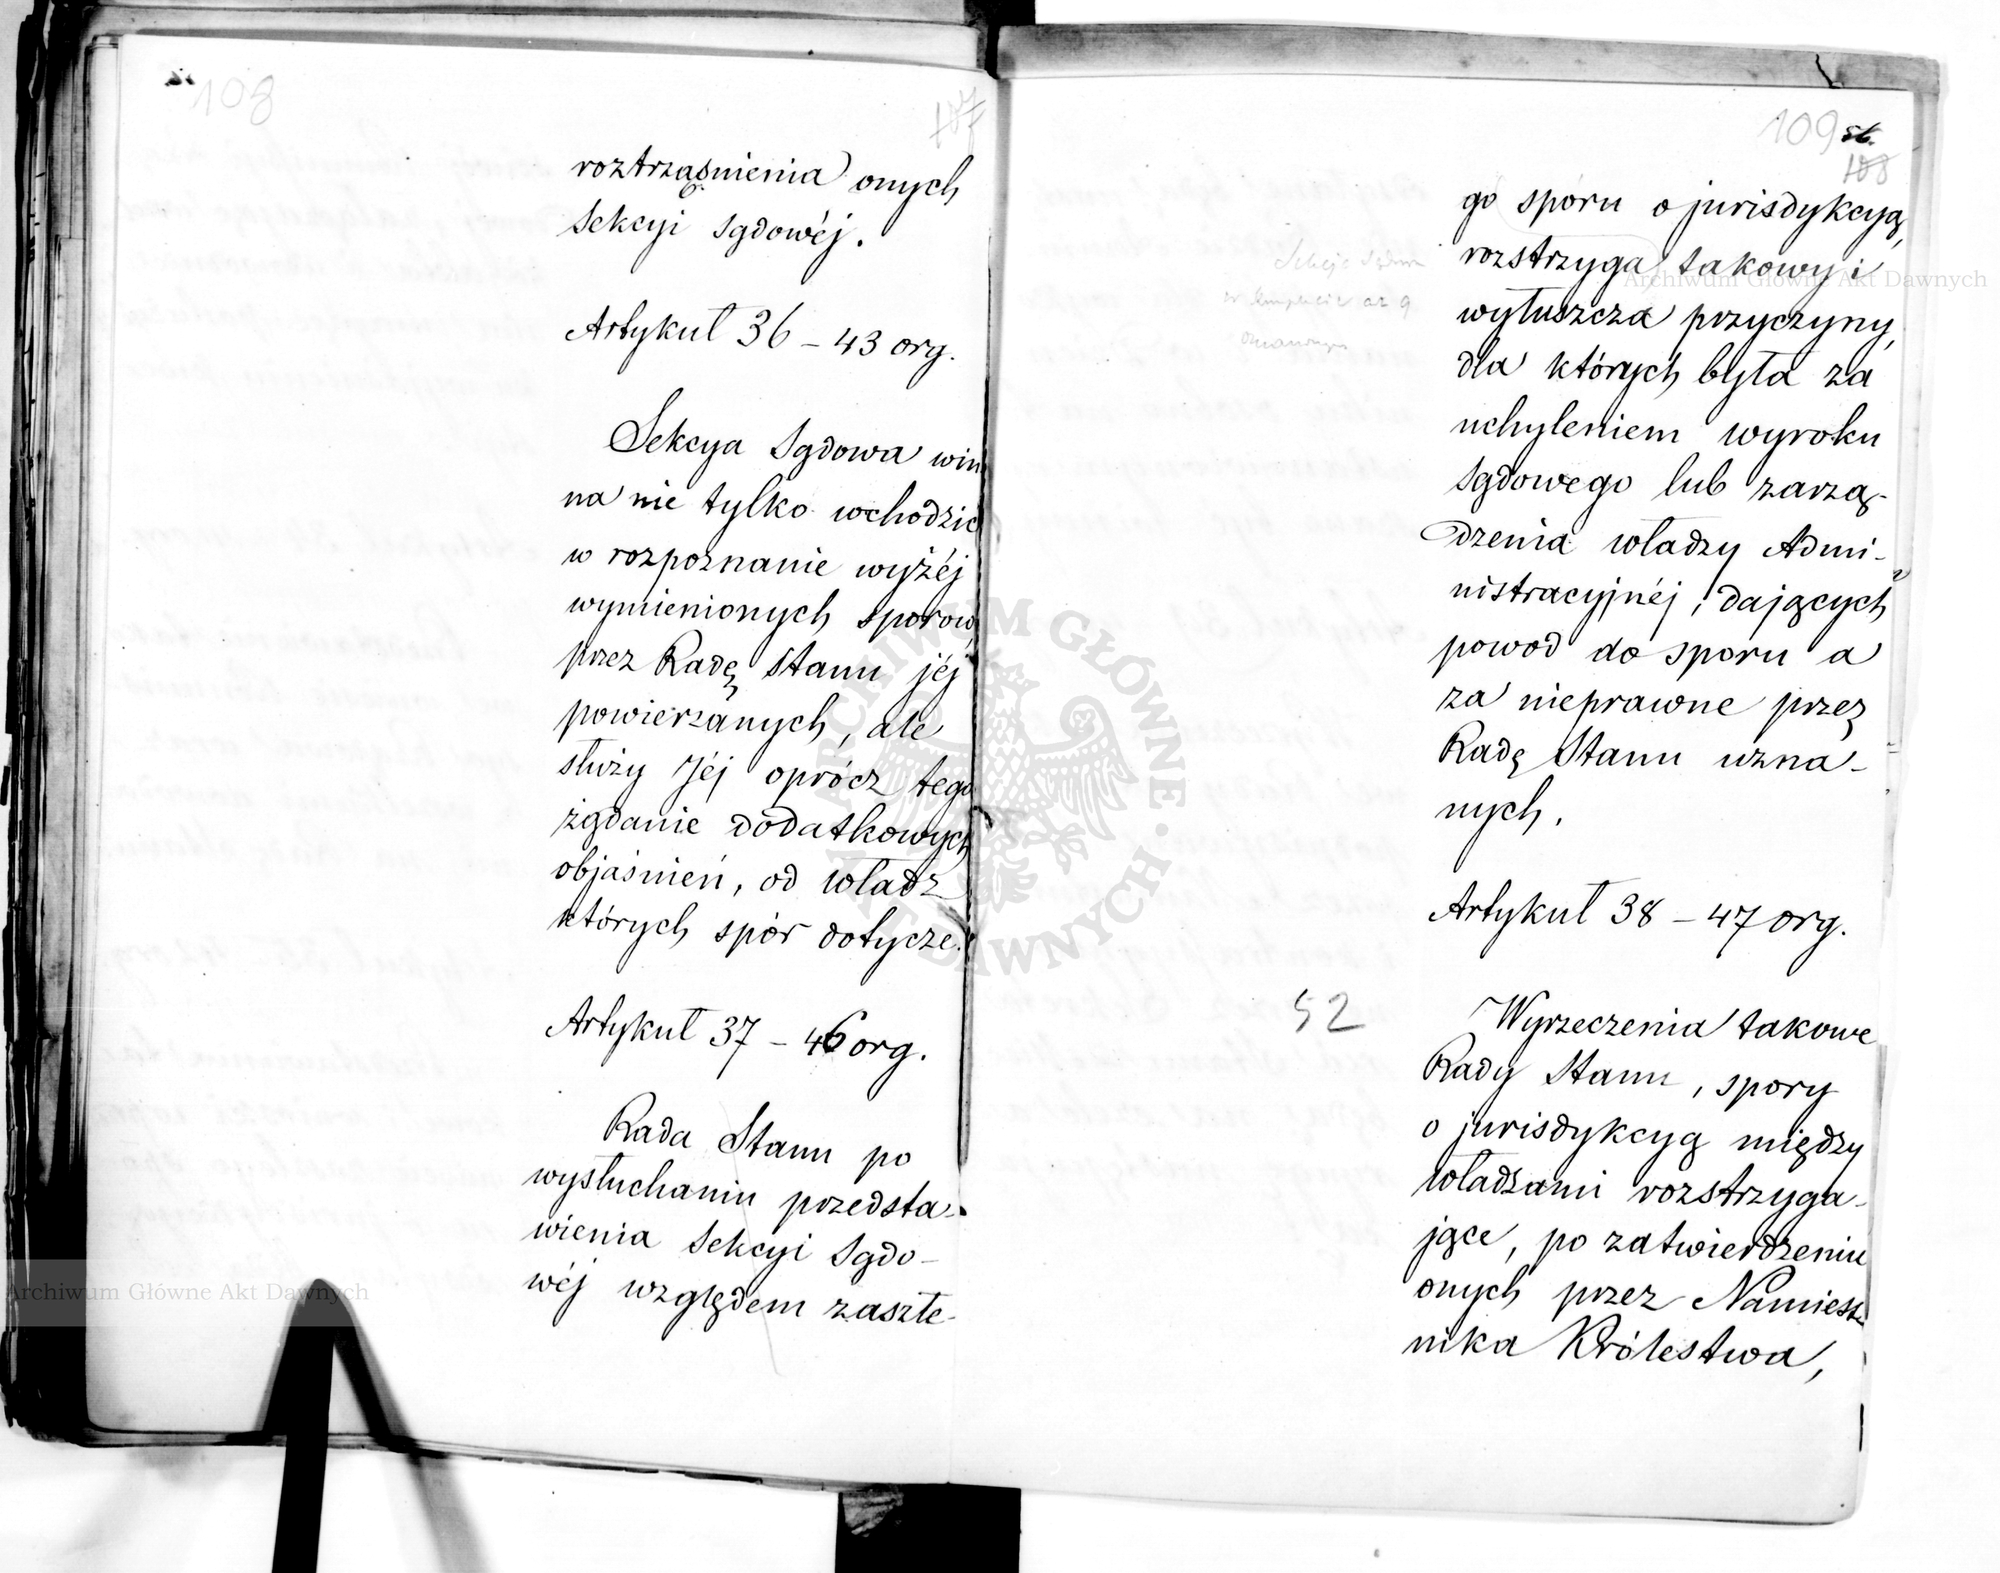 108
107
roztrząsnienia onych
Sekcyi Sądowéj.
Artykuł 36 – 43 org.
Sekcya Sądowa win
na nie tylko wchodzić
w rozpoznanie wyżéj
wymienionych sporów
przez Radę Stanu jéj
powierzanych, ale
służy Jéj oprócz tego
żądanie dodatkowych
objaśnień, od władz
których spór dotycze.
Artykuł 37 – 46 org.
Rada Stanu po
wysłuchaniu przedsta-
wienia Sekcyi Sądo-
wéj względem zaszłe-
109
108
go sporu o jurisdykcyą,
rozstrzyga takowy i
wyłuszcza przyczyny,
dla których była za
uchyleniem wyroku
Sądowego lub zarzą-
dzenia władzy Admi-
nistracyjnéj, dających
powod do sporu a
za nieprawne przez
Radę Stanu uzna-
nych.
Artykuł 38 – 47 org.
52
Wyrzeczenia takowe
Rady Stanu, spory
o jurisdykcyą między
władzami rozstrzyga-
jące, po zatwierdzeniu
onych przez Namiest-
nika Królestwa,
Archiwum Główne Akt Dawnych
Archiwum Główne Akt Dawnych
ARCHIWUM GŁÓWNE AKT DAWNYCH